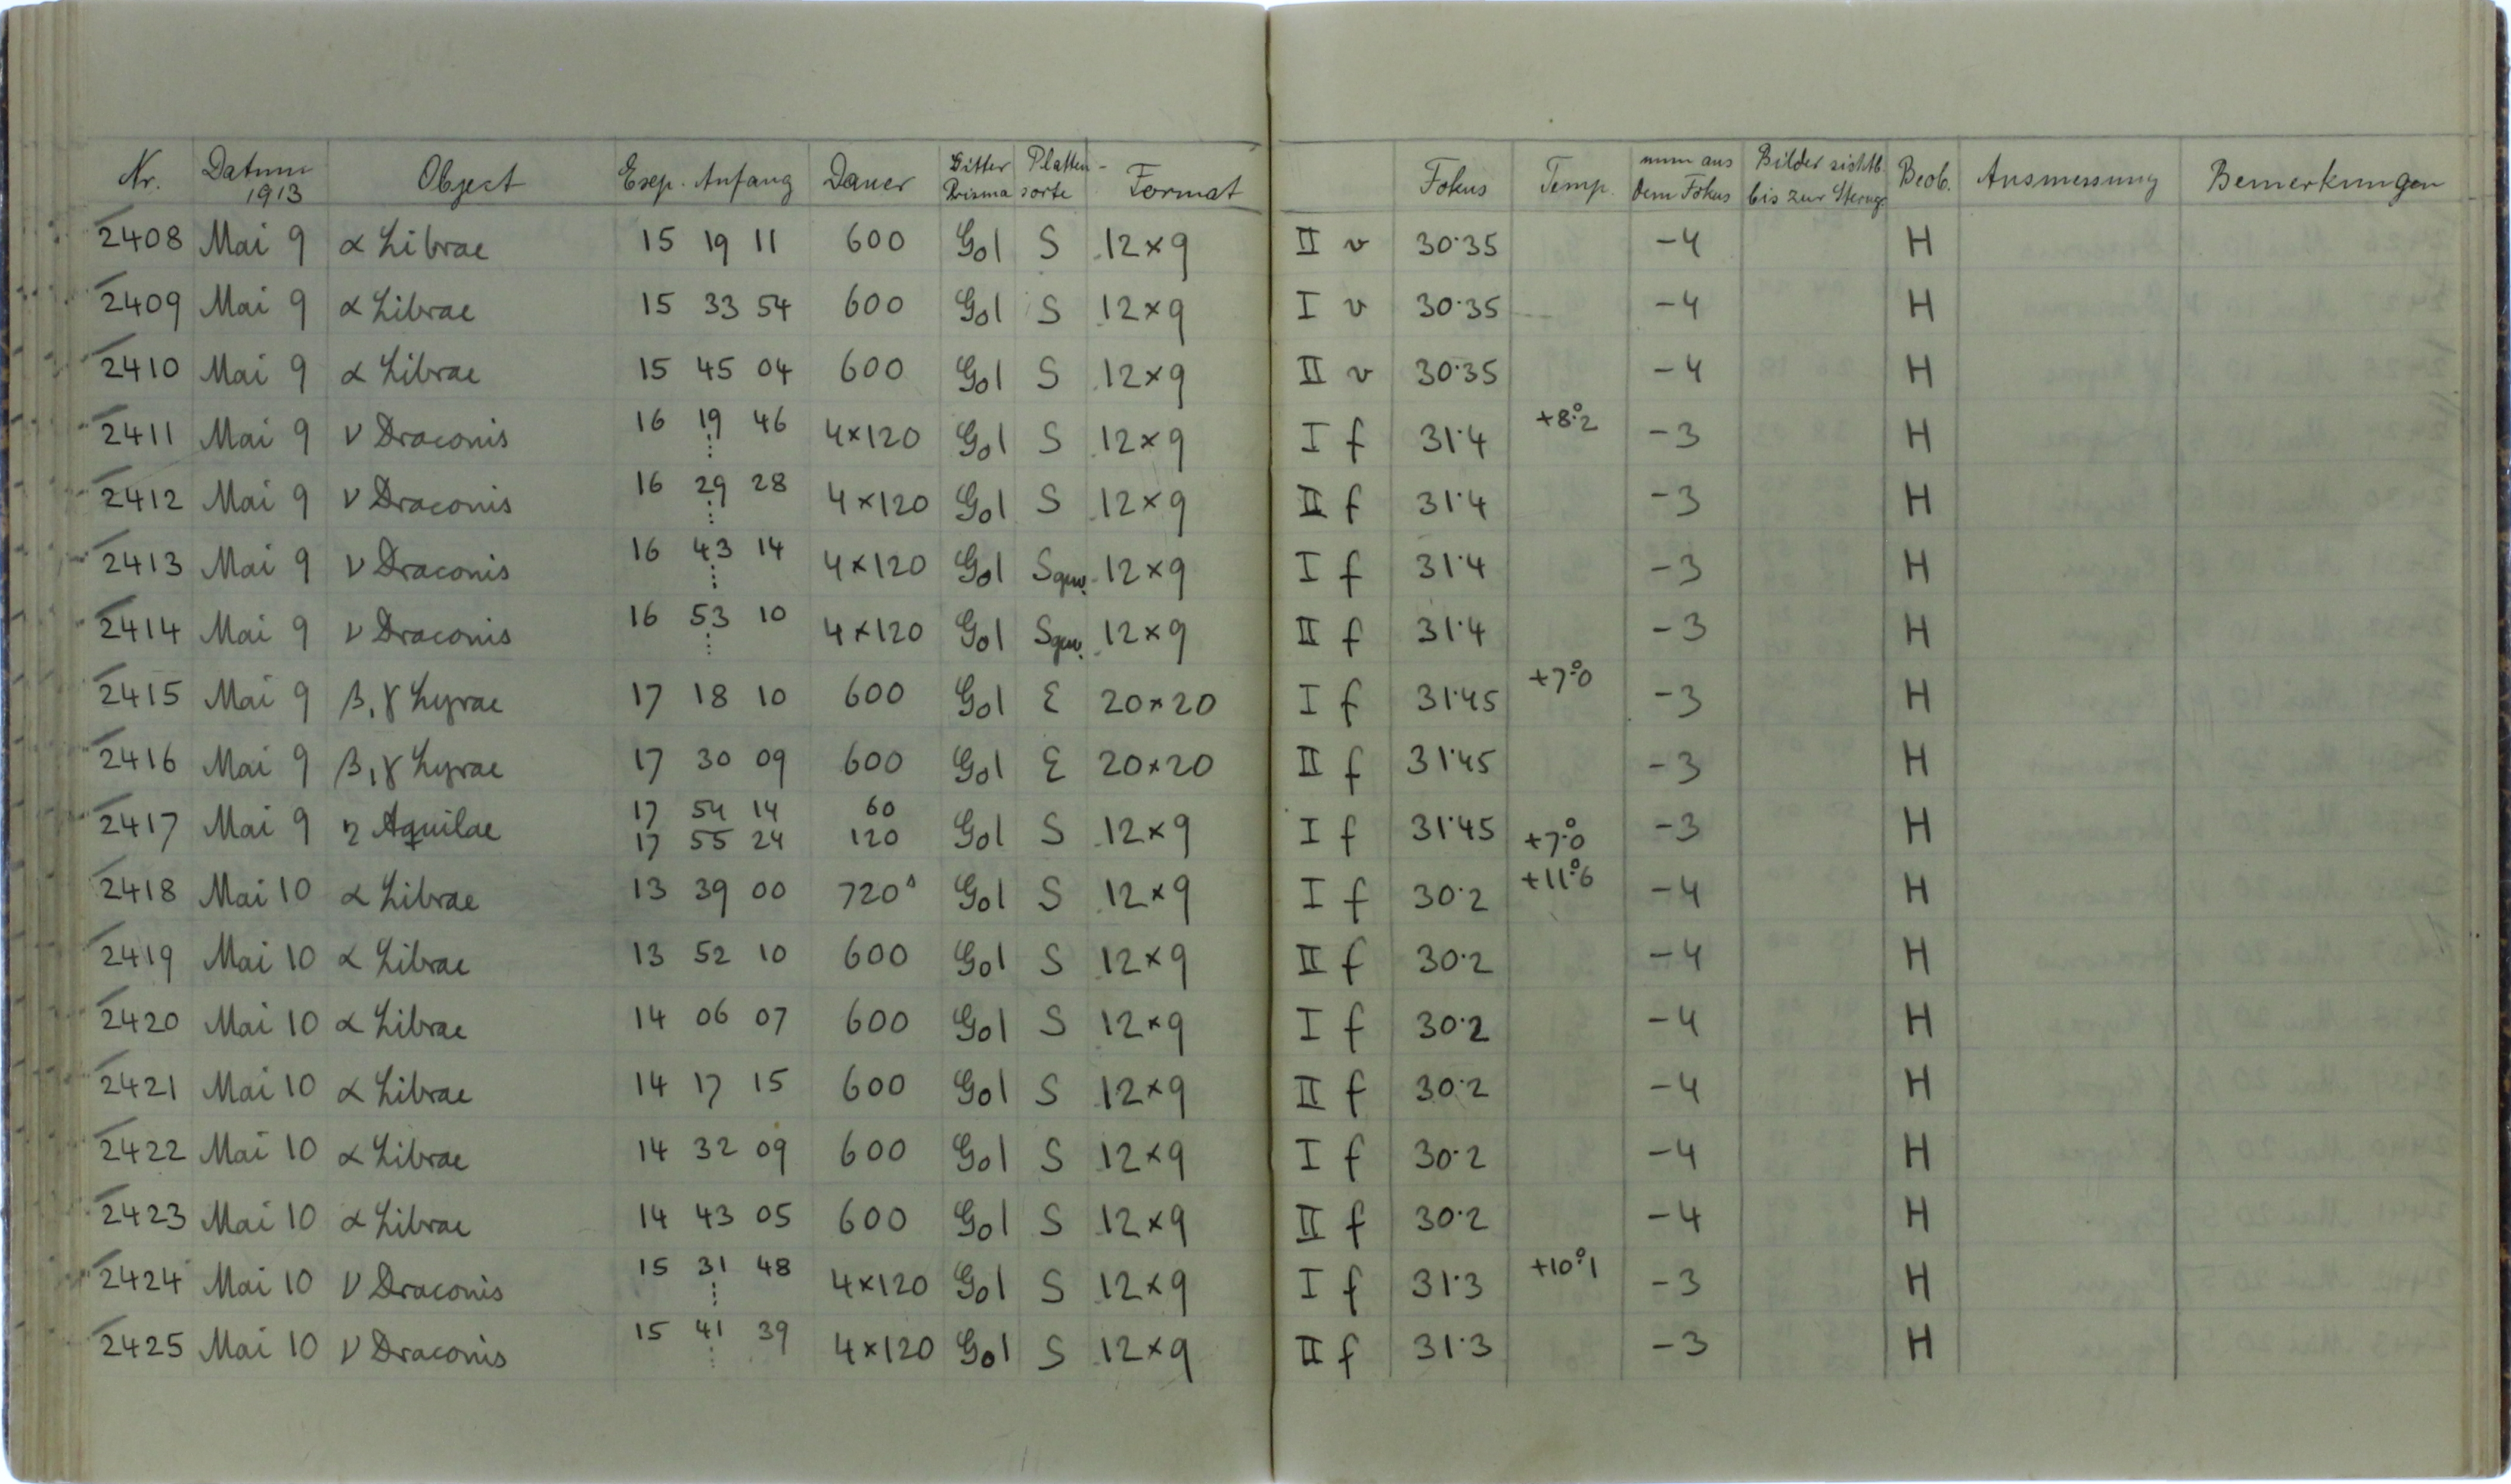 Nr. Datum 1913 Object Exp. Anfang Dauer Gitter Prisma Platten-sorte Format Fokus Temp. mm aus dem Fokus Bilder sichtb. bis zur Sterngr. Beob. Ausmessung Bemerkungen
2408 Mai 9 α Librae 15 19 11 600 Go1 S 12×9 II v 30.35 -4 H
2409 Mai 9 α Librae 15 33 54 600 Go1 S 12×9 I v 30.35 -4 H
2410 Mai 9 α Librae 15 45 04 600 Go1 S 12×9 II v 30.35 -4 H
2411 Mai 9 ν Draconis 16 19 46 ⋮ 4×120 Go1 S 12×9 I f 31.4 +8.°2 -3 H
2412 Mai 9 ν Draconis 16 29 28 ⋮ 4×120 Go1 S 12×9 II f 31.4 -3 H
2413 Mai 9 ν Draconis 16 43 14 ⋮ 4×120 Go1 Sgew. 12×9 I f 31.4 -3 H
2414 Mai 9 ν Draconis 16 53 10 ⋮ 4×120 Go1 Sgew. 12×9 II f 31.4 -3 H
2415 Mai 9 β, γ Lyrae 17 18 10 600 Go1 E 20×20 I f 31.45 +7.°0 -3 H
2416 Mai 9 β, γ Lyrae 17 30 09 600 Go1 E 20×20 II f 31.45 -3 H
2417 Mai 9 η Aquilae 17 54 14 60 Go1 S 12×9 I f 31.45 +7.°0 -3 H
17 55 24 120
2418 Mai 10 α Librae 13 39 00 720ˢ Go1 S 12×9 I f 30.2 +11.°6 -4 H
2419 Mai 10 α Librae 13 52 10 600 Go1 S 12×9 II f 30.2 -4 H
2420 Mai 10 α Librae 14 06 07 600 Go1 S 12×9 I f 30.2 -4 H
2421 Mai 10 α Librae 14 17 15 600 Go1 S 12×9 II f 30.2 -4 H
2422 Mai 10 α Librae 14 32 09 600 Go1 S 12×9 I f 30.2 -4 H
2423 Mai 10 α Librae 14 43 05 600 Go1 S 12×9 II f 30.2 -4 H
2424 Mai 10 ν Draconis 15 31 48 ⋮ 4×120 Go1 S 12×9 I f 31.3 +10.°1 -3 H
2425 Mai 10 ν Draconis 15 41 39 ⋮ 4×120 Go1 S 12×9 II f 31.3 -3 H